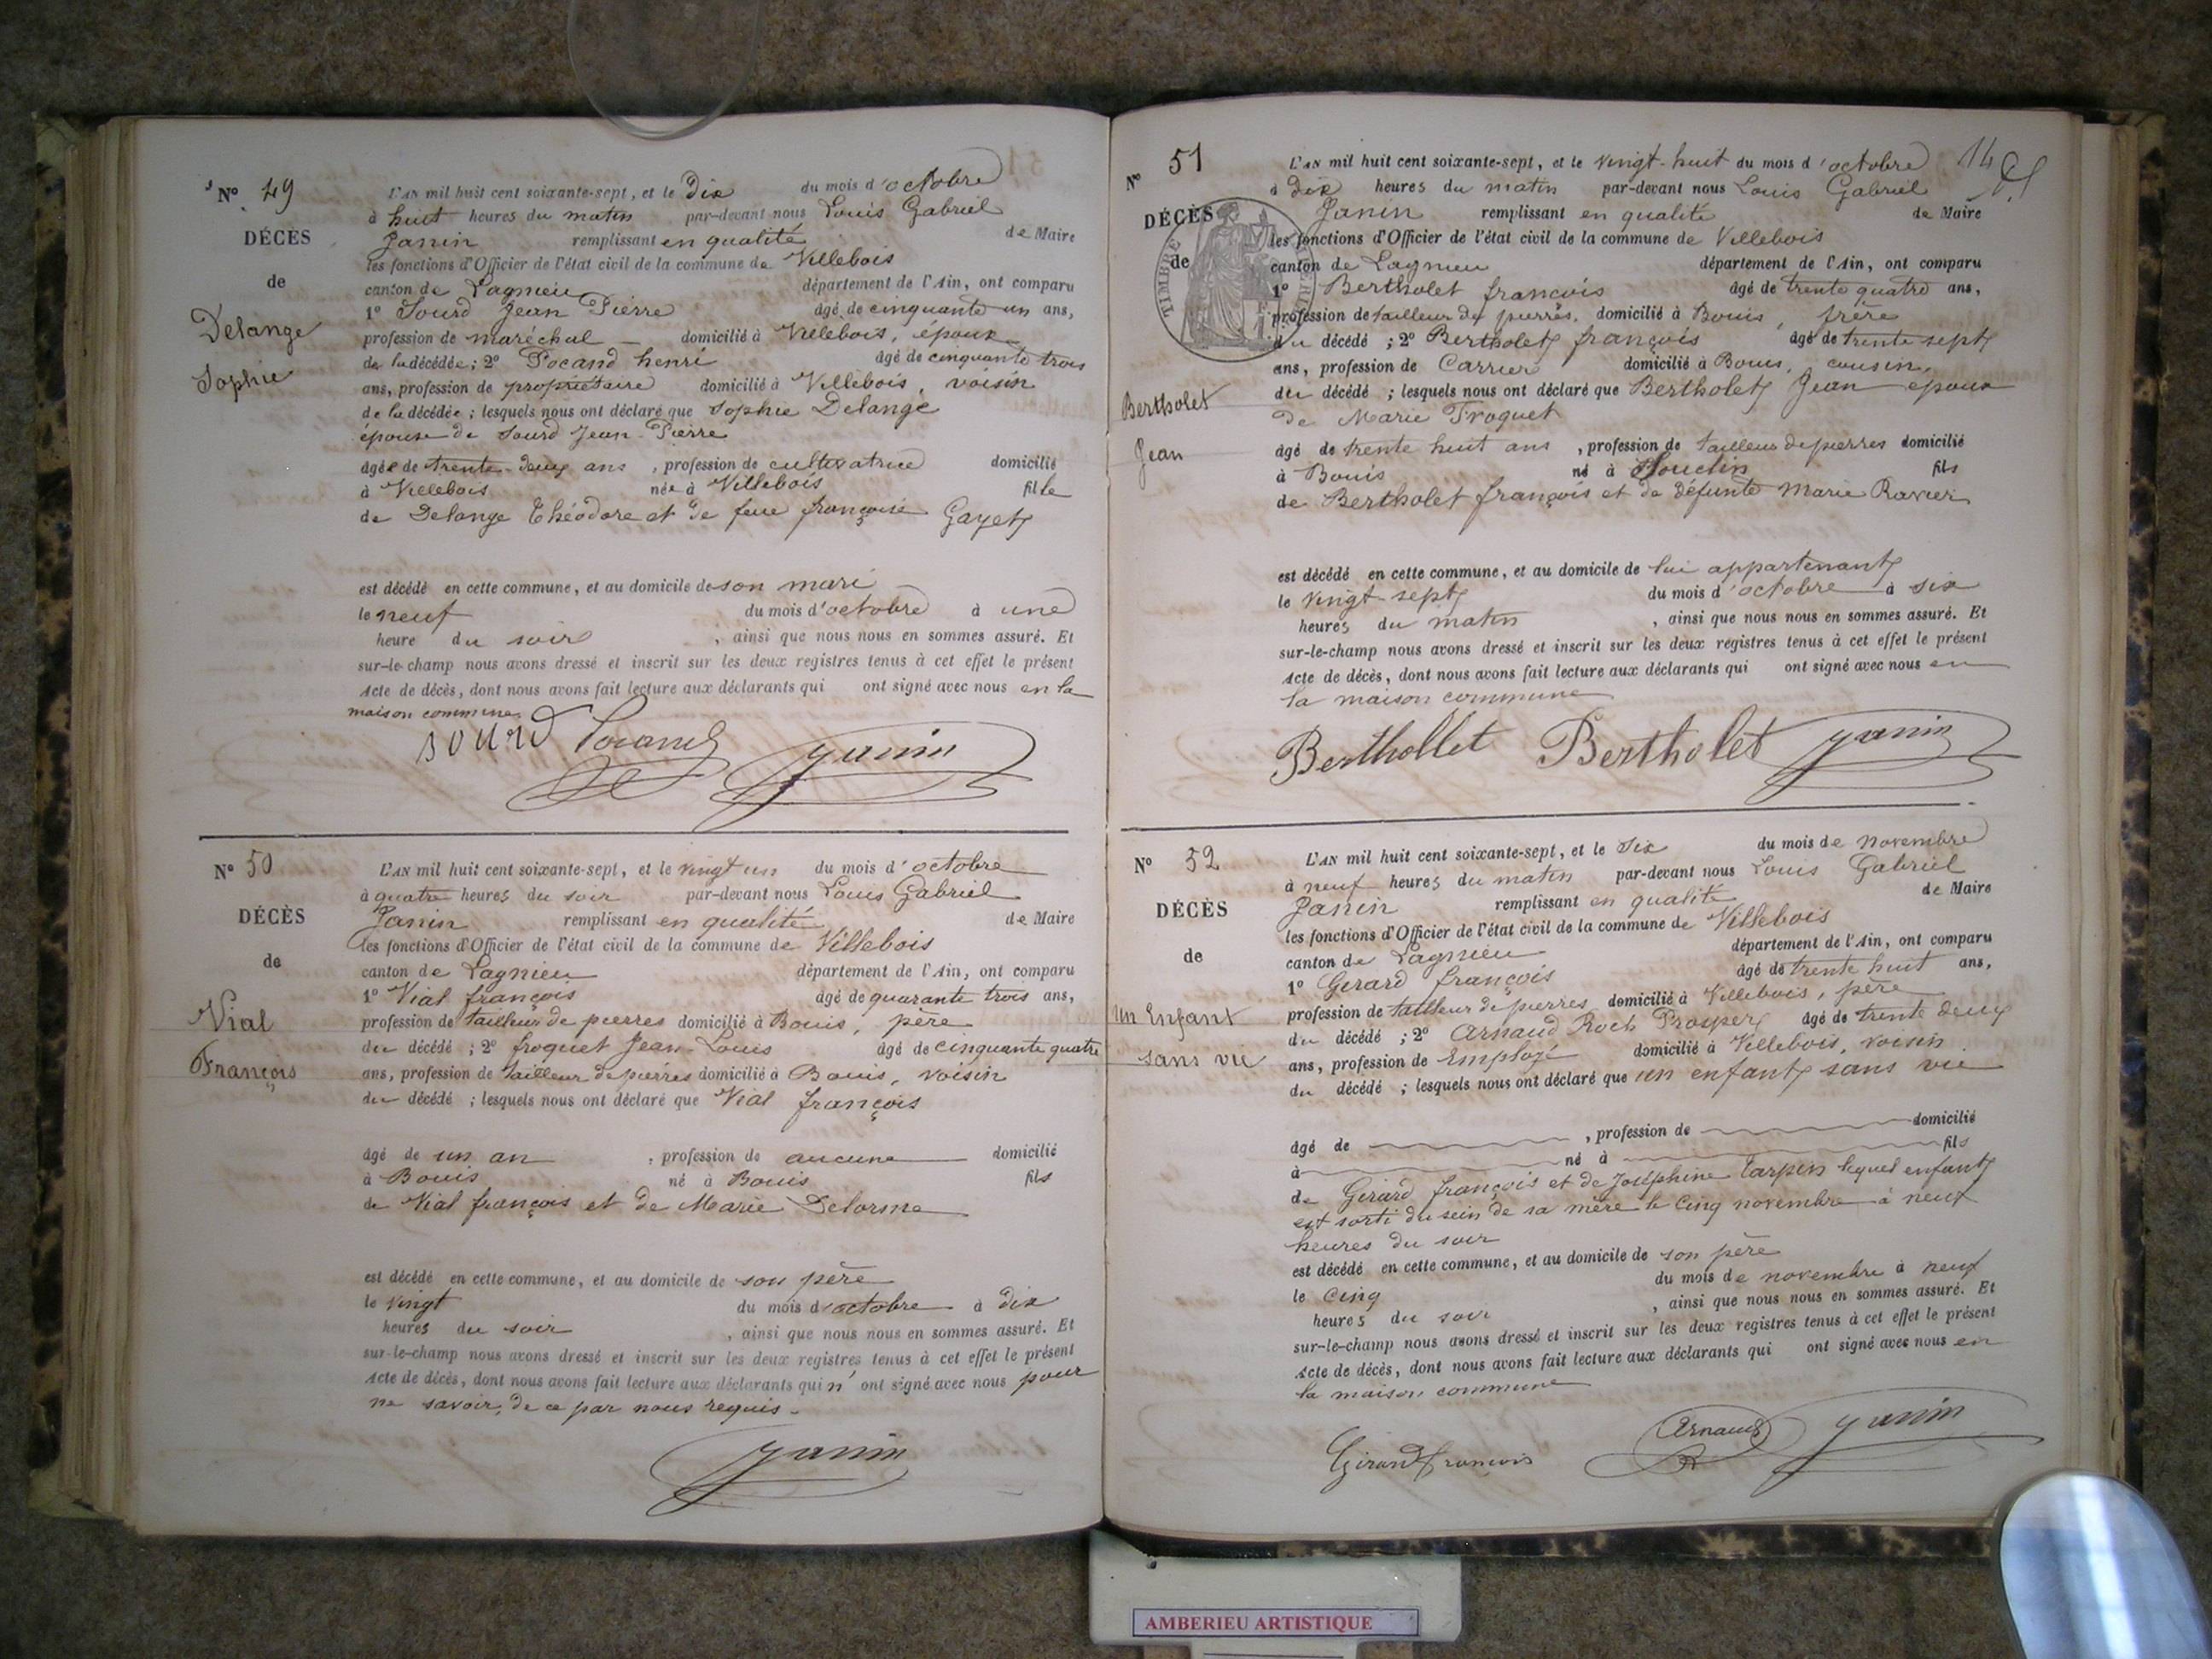 N° 49
DÉCÈS
de
Delange
Sophie
L'AN mil huit cent soixante-sept, et le Dix du mois d'octobre
à huit heures du matin par-devant nous Louis Gabriel
Janin remplissant en qualité de Maire
les fonctions d'Officier de l'état civil de la commune de Villebois
canton de Lagnieu département de l'Ain, ont comparu
1° Sourd Jean Pierre âgé de cinquante un ans,
profession de maréchal domicilié à Villebois, époux
de la décédée; 2° Pocand henri âgé de cinquante trois
ans, profession de propriétaire domicilié à Villebois, voisin
de la décédée; lesquels nous ont déclaré que Sophie Delange
épouse de Sourd Jean-Pierre
âgée de trente-deux ans, profession de cultivatrice domicilié
à Villebois née à Villebois fille
de Delange Théodore et de feue françoise Gayet
est décédé en cette commune, et au domicile de son mari
le neuf du mois d'octobre à une
heure du soir, ainsi que nous nous en sommes assuré. Et
sur-le-champ nous avons dressé et inscrit sur les deux registres tenus à cet effet le présent
Acte de décès, dont nous avons fait lecture aux déclarants qui ont signé avec nous en la
maison commune.
sourd Pocand Janin
N° 50
DÉCÈS
de
Vial
François
L'AN mil huit cent soixante-sept, et le vingt un du mois d'octobre
à quatre heures du soir par-devant nous Louis Gabriel
Janin remplissant en qualité de Maire
les fonctions d'Officier de l'état civil de la commune de Villebois
canton de Lagnieu département de l'Ain, ont comparu
1° Vial françois âgé de quarante trois ans,
profession de tailleur de pierres domicilié à Bouis, père
du décédé; 2° froquet Jean-Louis âgé de cinquante quatre
ans, profession de tailleur de pierres domicilié à Bouis, voisin
du décédé; lesquels nous ont déclaré que Vial françois
âgé de un an, profession de aucune domicilié
à Bouis né à Bouis fils
de Vial françois et de Marie Delorme
est décédé en cette commune, et au domicile de son père
le vingt du mois d'octobre à dix
heures du soir, ainsi que nous nous en sommes assuré. Et
sur-le-champ nous avons dressé et inscrit sur les deux registres tenus à cet effet le présent
Acte de décès, dont nous avons fait lecture aux déclarants qui n'ont signé avec nous pour
ne savoir, de ce par nous requis.
Janin
14
N° 51
DÉCÈS
de
TIMBRE
Bertholet
Jean
L'AN mil huit cent soixante-sept, et le vingt-huit du mois d'octobre
à dix heures du matin par-devant nous Louis Gabriel
Janin remplissant en qualité de Maire
les fonctions d'Officier de l'état civil de la commune de Villebois
canton de Lagnieu département de l'Ain, ont comparu
1° Bertholet françois âgé de trente quatre ans,
profession de tailleur de pierres, domicilié à Bouis, frère
du décédé; 2° Bertholet françois âgé de trente sept
ans, profession de Carrier domicilié à Bouis, cousin
du décédé; lesquels nous ont déclaré que Bertholet Jean époux
de Marie Froquet
âgé de trente huit ans, profession de tailleur de pierres domicilié
à Bouis né à Bouclin fils
de Bertholet françois et de défunte Marie Ravier
est décédé en cette commune, et au domicile de lui appartenant
le vingt-sept du mois d'octobre à six
heures du matin, ainsi que nous nous en sommes assuré. Et
sur-le-champ nous avons dressé et inscrit sur les deux registres tenus à cet effet le présent
Acte de décès, dont nous avons fait lecture aux déclarants qui ont signé avec nous en
la maison commune
Berthollet Bertholet Janin
N° 52
DÉCÈS
de
Un Enfant
sans vie
L'AN mil huit cent soixante-sept, et le Six du mois de novembre
à neuf heures du matin par-devant nous Louis Gabriel
Janin remplissant en qualité de Maire
les fonctions d'Officier de l'état civil de la commune de Villebois
canton de Lagnieu département de l'Ain, ont comparu
1° Girard françois âgé de trente huit ans,
profession de tailleur de pierres domicilié à Villebois, père
du décédé; 2° Arnaud Roch Prosper âgé de trente deux
ans, profession de Employé domicilié à Villebois, voisin
du décédé; lesquels nous ont déclaré que un enfant sans vie
âgé de, profession de domicilié
à né à fils
de Girard françois et de Joséphine Tarpin lequel enfant
est sorti du sein de sa mère le cinq novembre à neuf
heures du soir
est décédé en cette commune, et au domicile de son père
le cinq du mois de novembre à neuf
heures du soir, ainsi que nous nous en sommes assuré. Et
sur-le-champ nous avons dressé et inscrit sur les deux registres tenus à cet effet le présent
Acte de décès, dont nous avons fait lecture aux déclarants qui ont signé avec nous en
la maison commune
Girard francois Arnaud Janin
AMBERIEU ARTISTIQUE